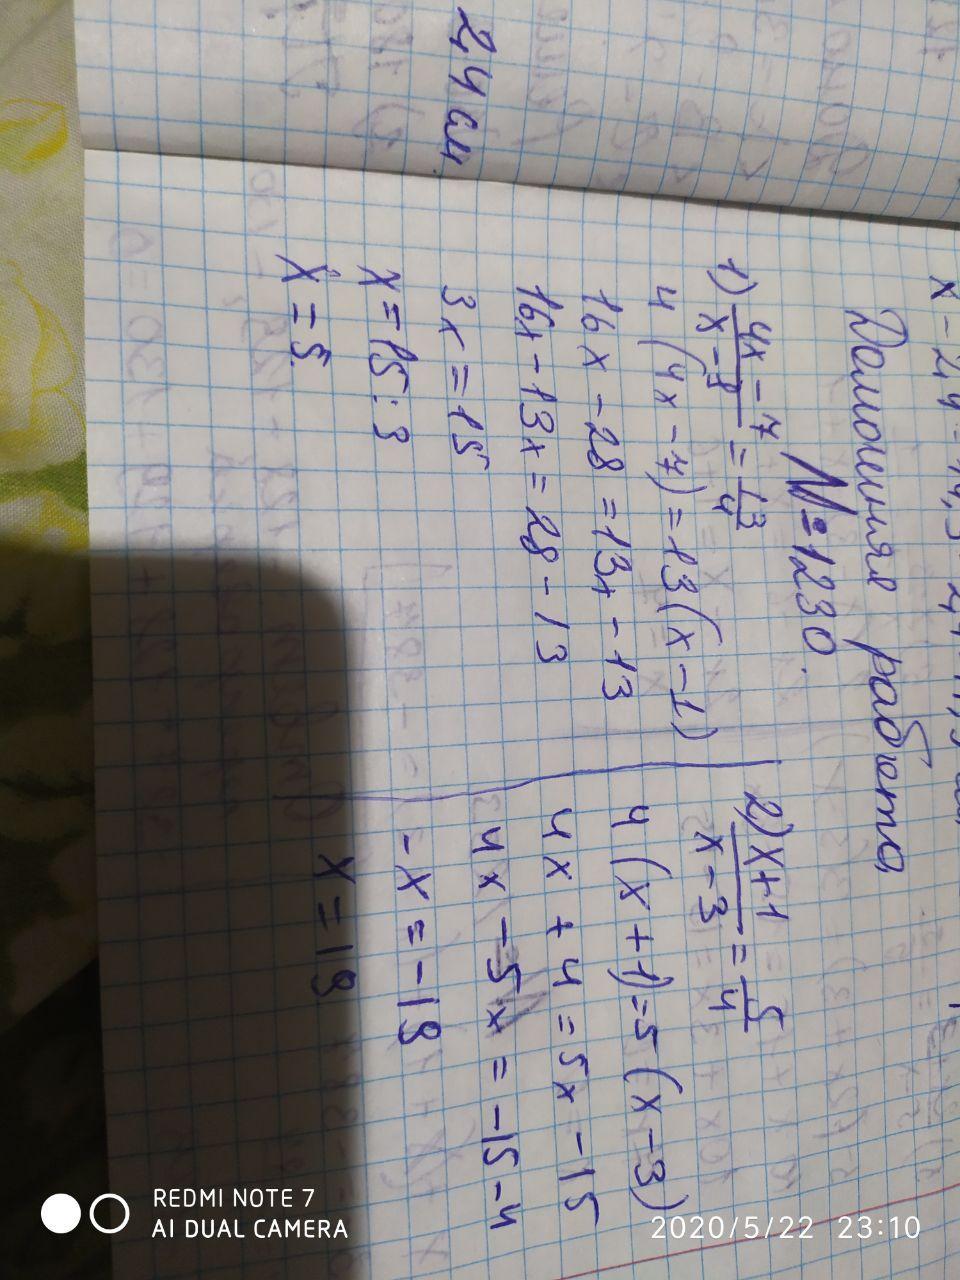 24 см.
Домашняя работа
№1230.
1) (4x-7)/(x-1) = 13/4
4(4x-7)=13(x-1)
16x-28=13x-13
16x-13x=28-13
3x=15
x=15:3
x=5.
2) (x+1)/(x-3) = 5/4
4(x+1)=5(x-3)
4x+4=5x-15
4x-5x=-15-4
-x=-19
x=19
REDMI NOTE 7
AI DUAL CAMERA
2020/5/22 23:10